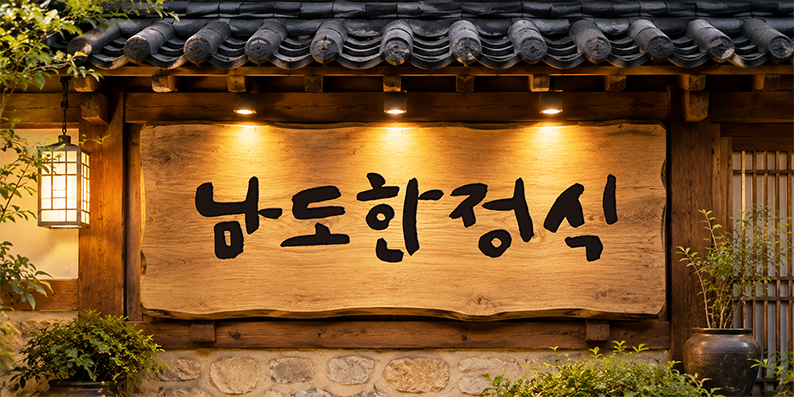 남도한정식